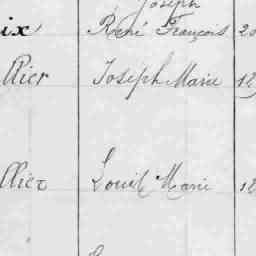 Joseph
ix René François 20
llier Joseph Marie 12
llier Louis Marie 12